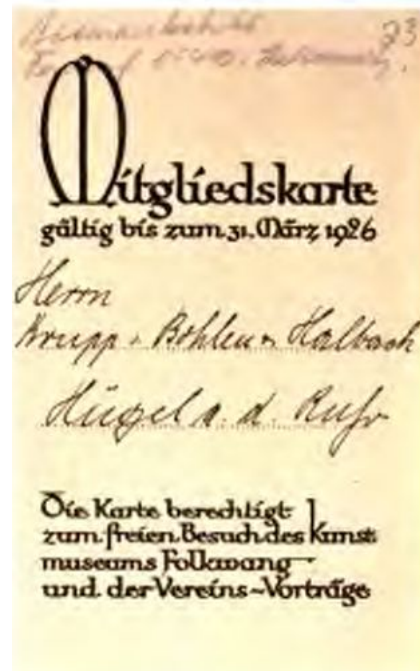 73
Mitgliedskarte
gültig bis zum 31. März 1926
Herrn
Krupp v. Bohlen u. Halbach
Hügel a. d. Ruhr
Die Karte berechtigt
zum freien Besuch des Kunst
museums Folkwang
und der Vereins-Vorträge